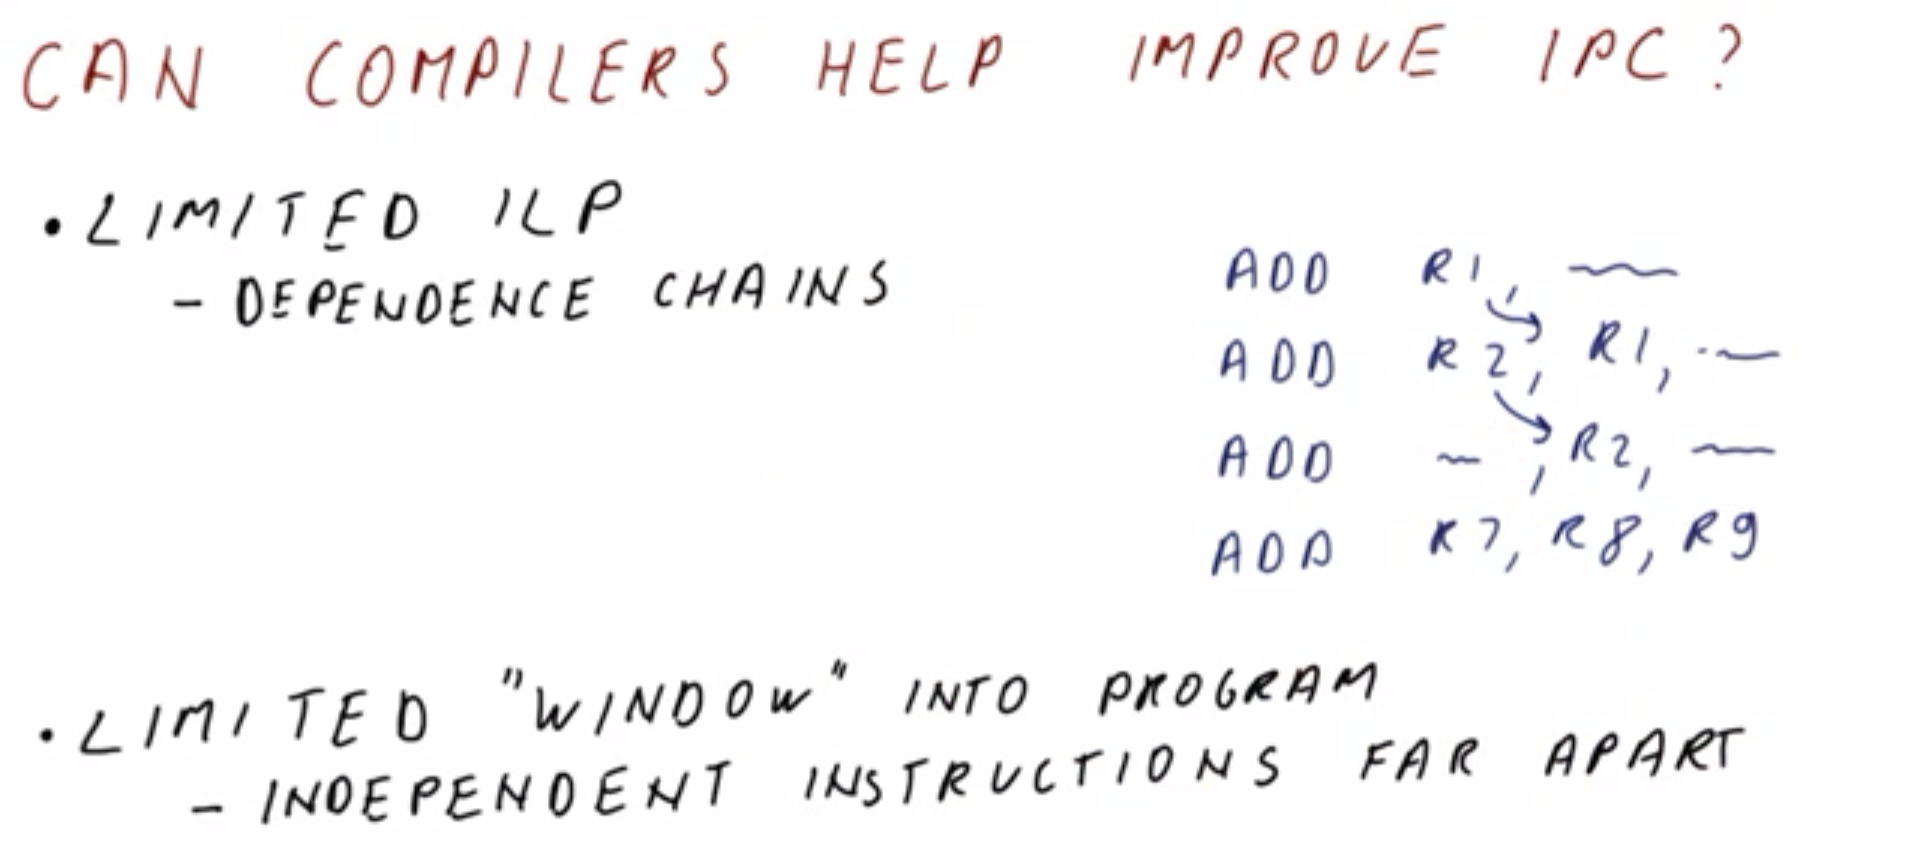 CAN COMPILERS HELP IMPROVE IPC?
• LIMITED ILP
- DEPENDENCE CHAINS
ADD R1,
ADD R2, R1,
ADD , R2,
ADD R7, R8, R9
• LIMITED "WINDOW" INTO PROGRAM
- INDEPENDENT INSTRUCTIONS FAR APART